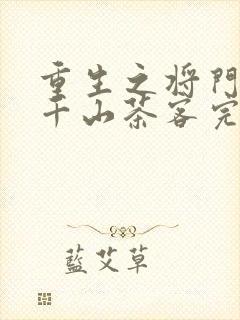 重生之将門
千山茶客完
藍艾草